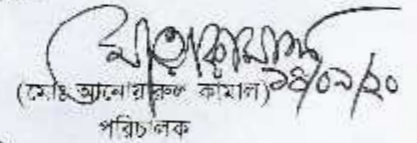 ১৪/০৯/২০
(মোঃ আনোয়ারুল কামাল)
পরিচালক